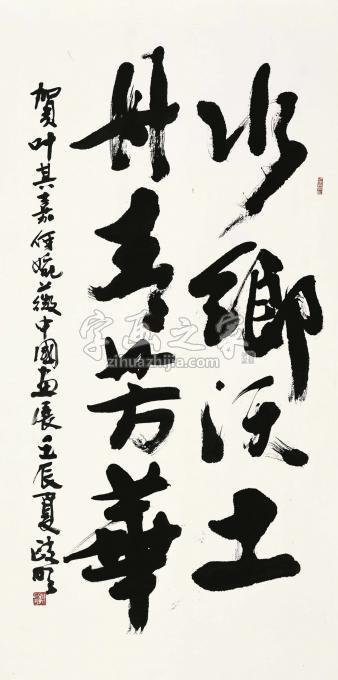 水鄉沃土
丹青芳華
賀叶其嘉何婉薇中國畫展壬辰夏
字画之家
zihuazhijia.com